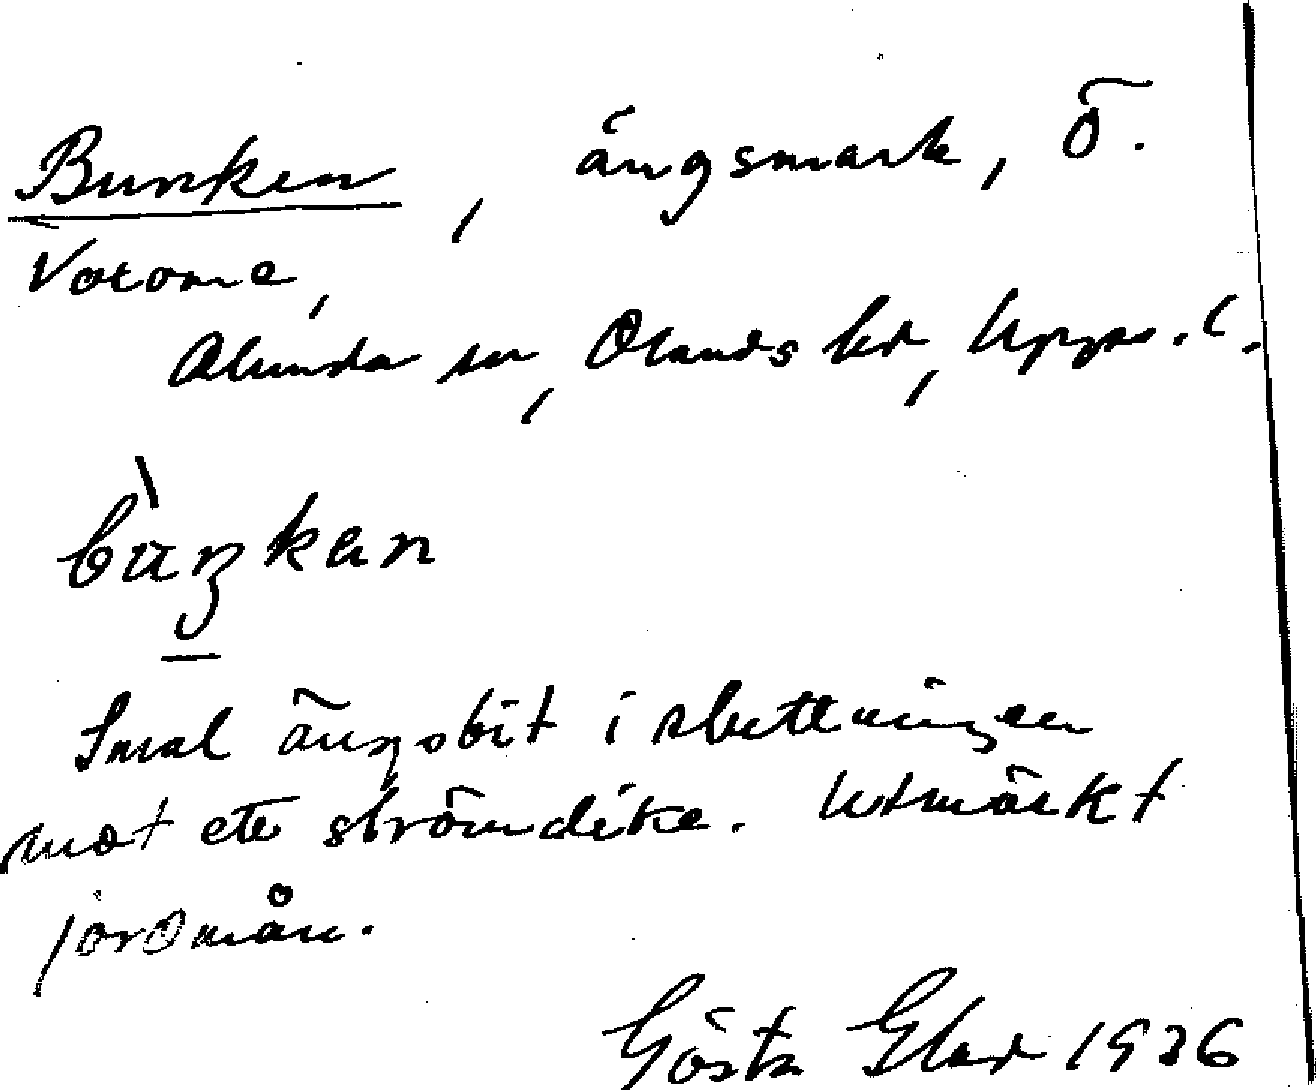 Bunken, ängsmark, Ö.
Votome,
Alunda sn, Olands hd, Upps. l.
bùŋkən
Smal ängsbit i sluttningen
mot ett strömdike. Utmärkt
jordmån.
Gösta Elex 1936